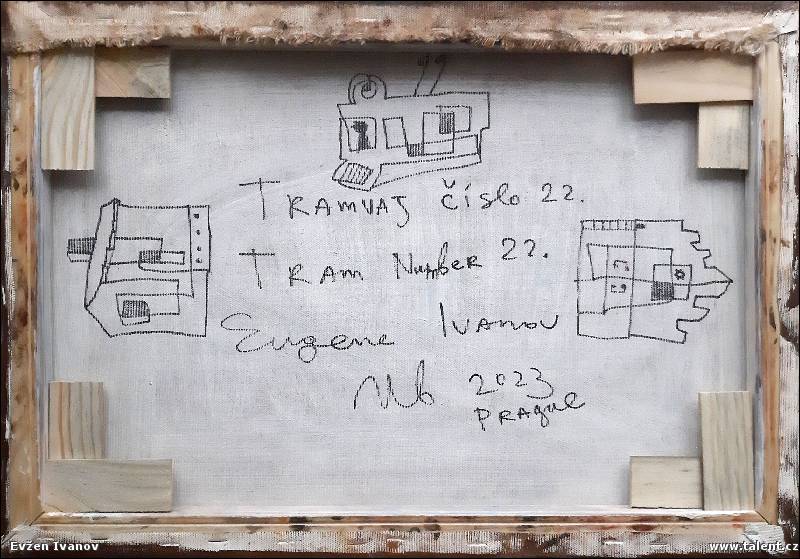 Tramvaj číslo 22.
Tram Number 22.
Eugene Ivanov
2023
Prague
Evžen Ivanov
www.talent.cz